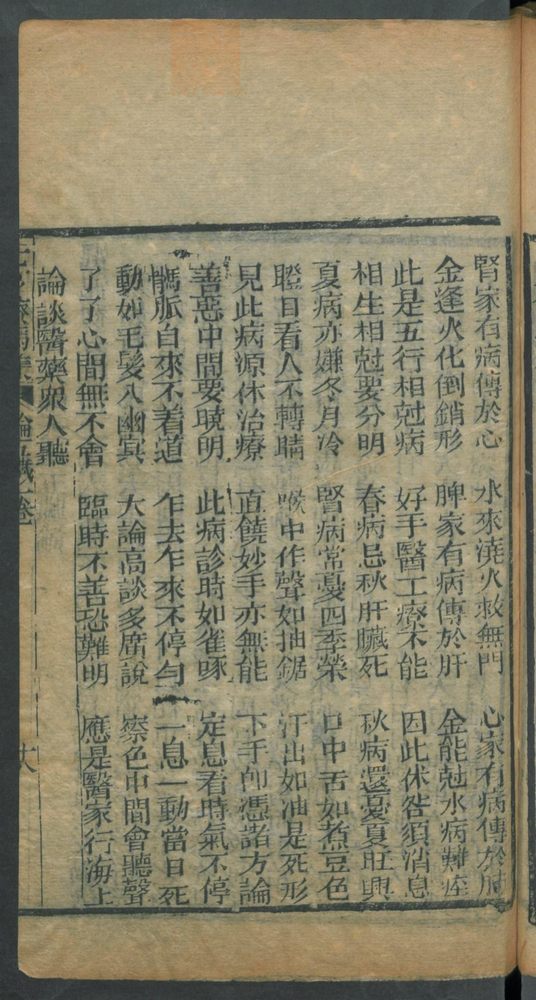 腎家有病傳於心 水來澆火救無門 心家有病傳於肺
金逢火化倒銷形 脾家有病傳於肝 金能尅水病難痊
此是五行相尅病 好手醫工療不能 因此休咎須消息
相生相尅要分明 春病忌秋肝臟死 秋病還憂夏肛興
夏病亦嫌冬月冷 腎病常憂四季榮 口中舌如煮豆色
瞪目看人不轉睛 喉中作聲如抽鋸 汗出如油是死形
見此病源休治療 直饒妙手亦無能 下手卽憑諸方論
善惡中間要曉明 此病診時如雀啄 定息看時氣不停
脈自來不着道 乍去乍來不停勻 一息一動當日死
動如毛髮入幽冥 大論高談多廣說 察色中間會聽聲
了了心間無不會 臨時不善恐難明 應是醫家行海上
論談醫藥眾人聽
論 卷